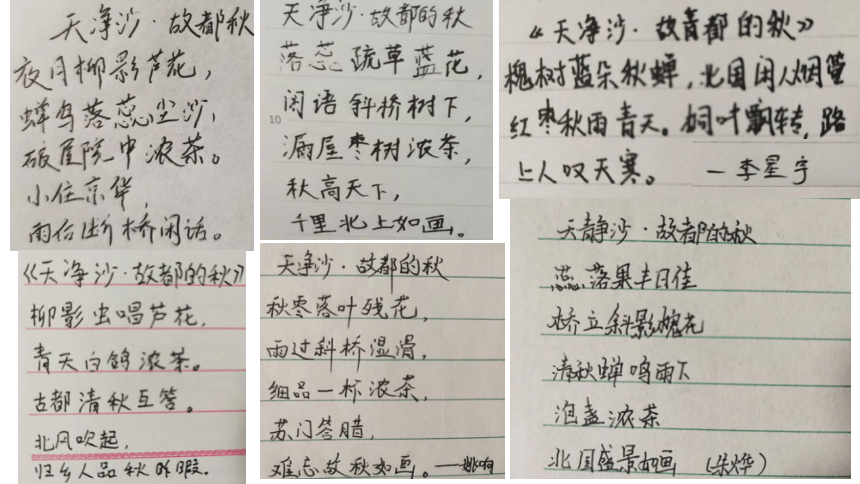 天净沙·故都秋
夜月柳影芦花，
蝉鸟落蕊尘沙，
破屋院中浓茶。
小住京华，
雨后断桥闲话。
天净沙·故都的秋
落蕊疏草蓝花，
闲语斜桥树下，
10
漏屋枣树浓茶，
秋高天下，
千里北上如画。
《天净沙·故都的秋》
槐树蓝朵秋蝉，北国闲人烟管
红枣秋雨青天。桐叶飘转，路
上人叹天寒。 —李星宇
《天净沙·故都的秋》
柳影虫唱芦花，
青天白鸽浓茶。
古都清秋互答。
北风吹起，
归乡人品秋
天净沙·故都的秋
秋枣落叶残花，
雨过斜桥湿滑，
细品一杯浓茶，
苏门答腊，
难忘故秋如画。——姚响
天静沙·故都的秋
蕊落果丰日佳
桥立斜影槐花
清秋蝉鸣雨下
泡盏浓茶
北国盛景如画 (朱烨)